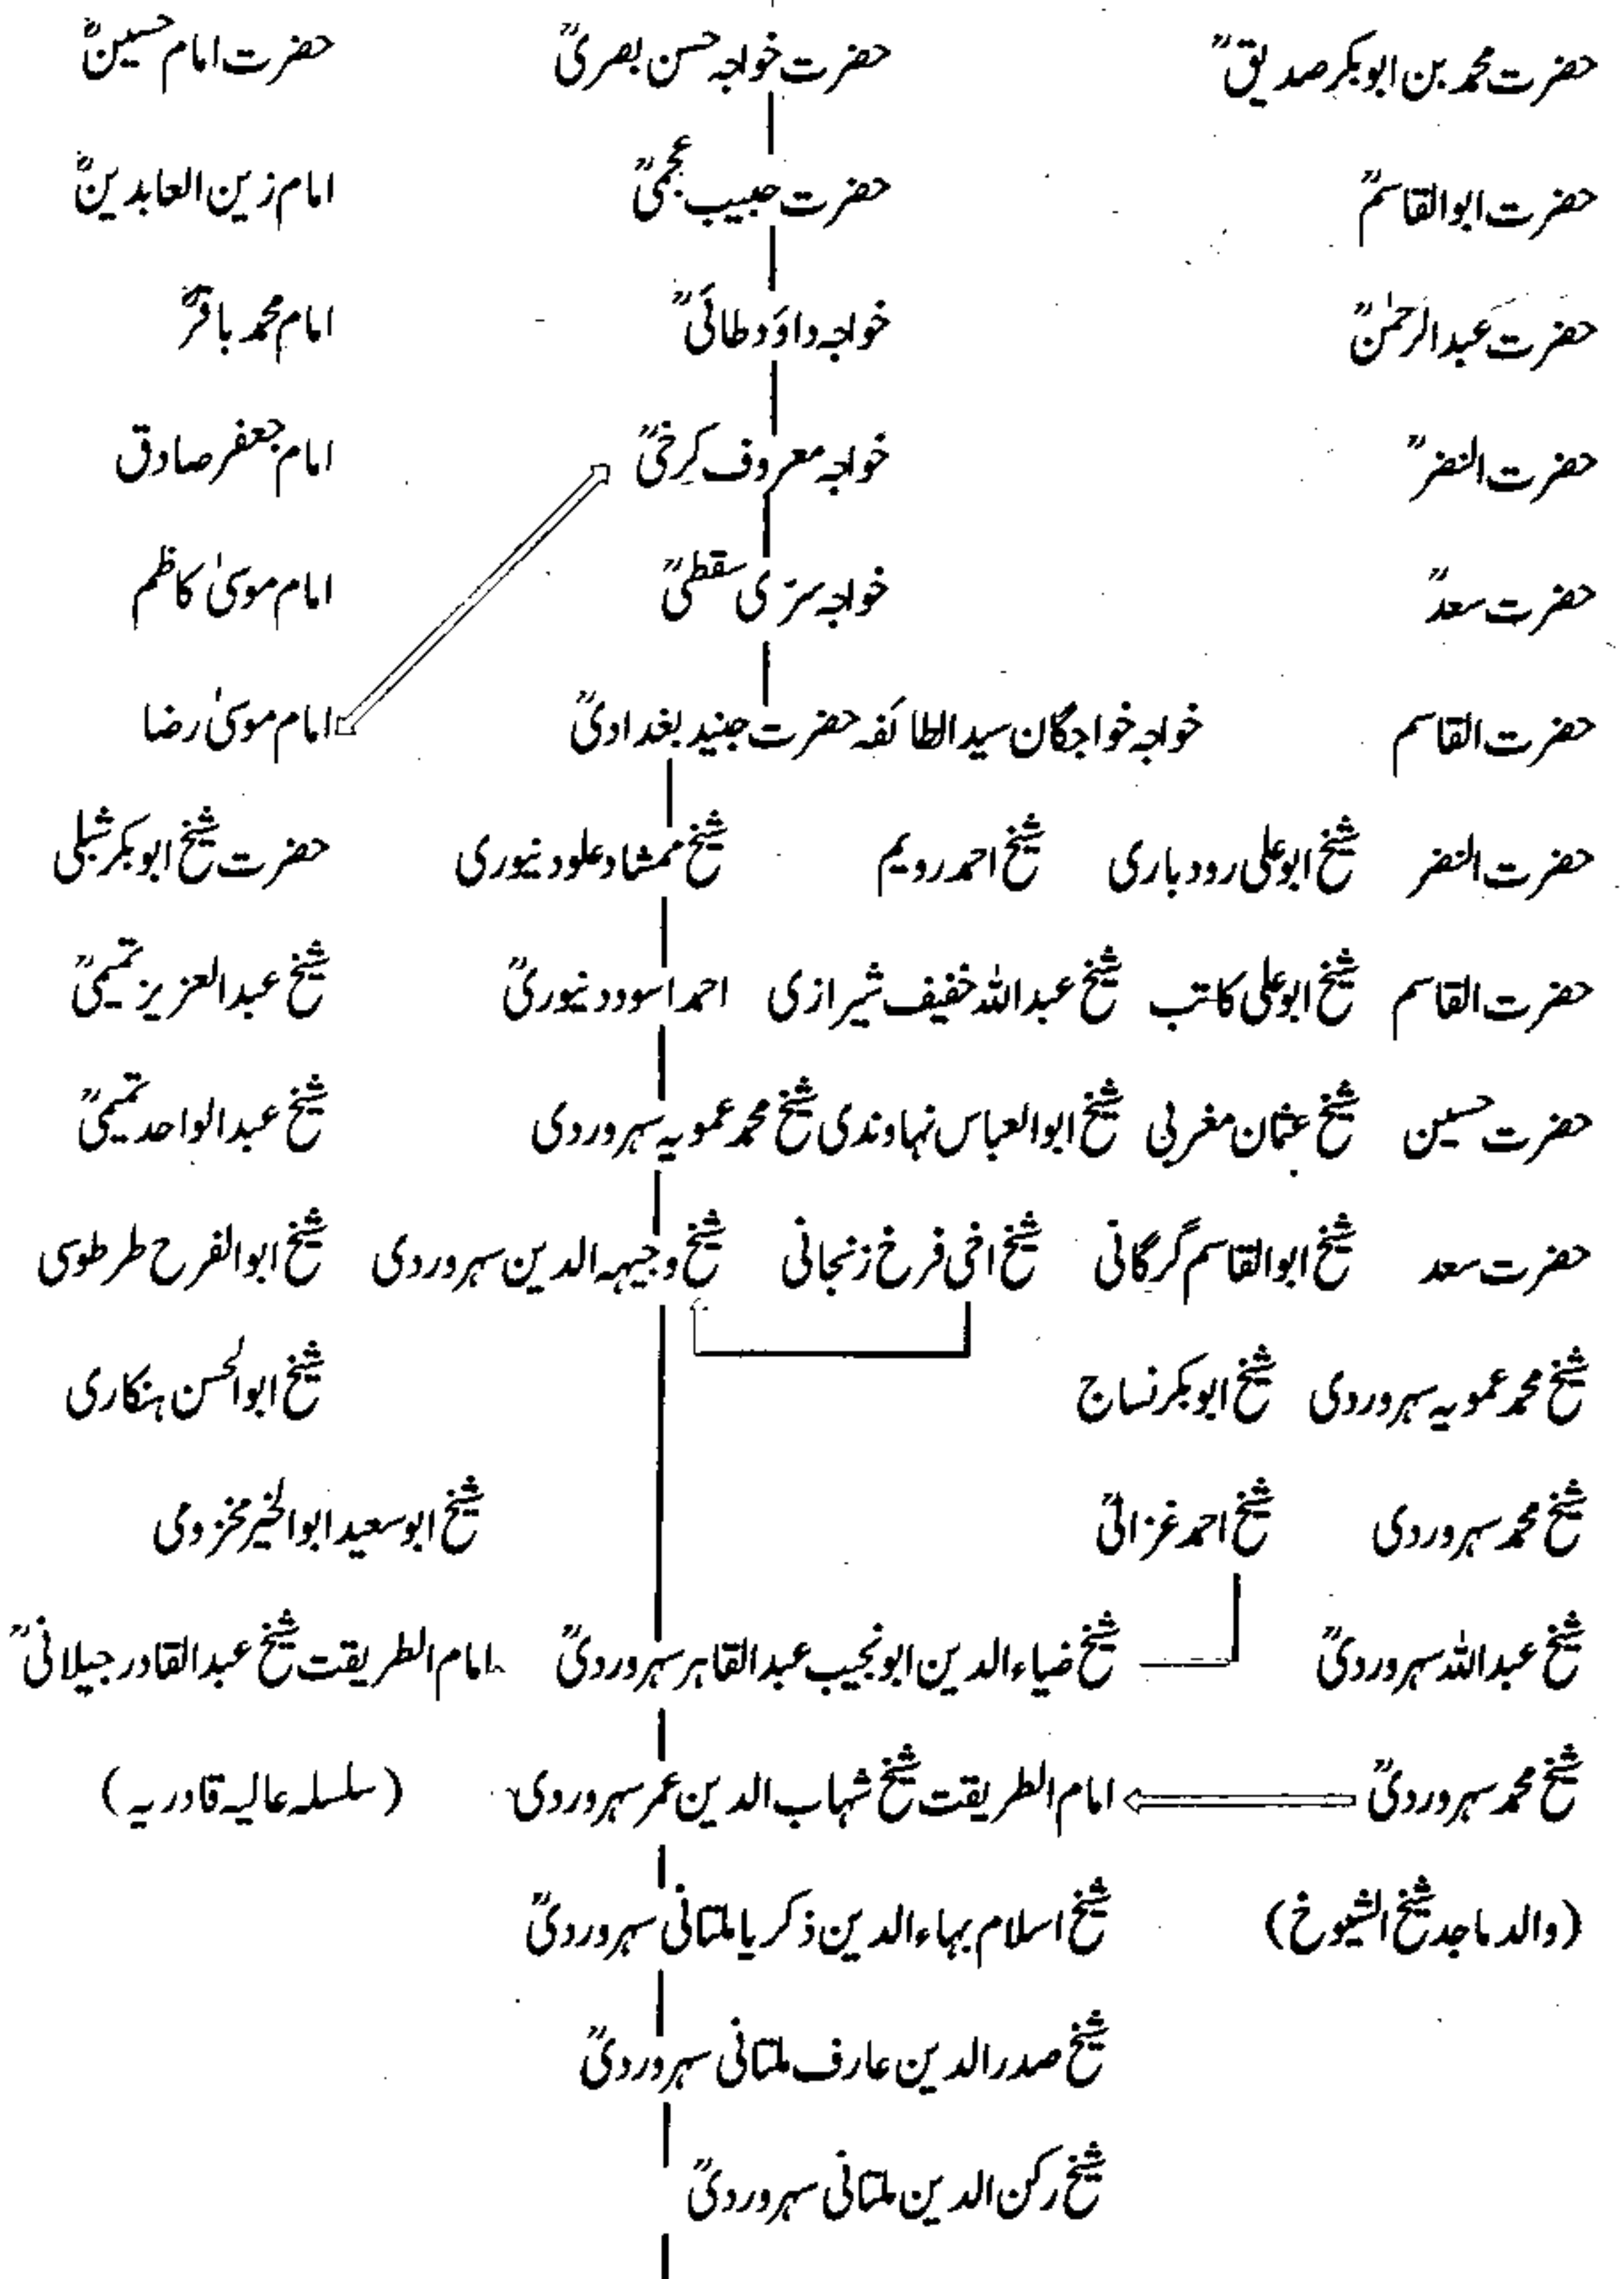 حضرت محمد بن ابوبکر صدیقؒ حضرت خواجہ حسن بصریؒ حضرت امام حسینؓ
حضرت ابوالقاسمؒ حضرت حبیب عجمیؒ امام زین العابدینؓ
حضرت عبدالرحمٰنؒ خواجہ داؤد طائیؒ امام محمد باقرؓ
حضرت النضرؒ خواجہ معروف کرخیؒ امام جعفر صادق
حضرت سعدؒ خواجہ سرّی سقطیؒ امام موسیٰ کاظم
حضرت القاسم خواجہ خواجگان سید الطائفہ حضرت جنید بغدادیؒ امام موسیٰ رضا
حضرت النضر شیخ ابوعلی رودباری شیخ احمد رویم شیخ ممشاد علو دنیوری حضرت شیخ ابوبکر شبلی
حضرت القاسم شیخ ابوعلی کاتب شیخ عبداللہ خفیف شیرازی احمد اسود دنیوریؒ شیخ عبدالعزیز تمیمیؒ
حضرت حسین شیخ عثمان مغربی شیخ ابوالعباس نہاوندی شیخ محمد عمویہ سہروردی شیخ عبدالواحد تمیمیؒ
حضرت سعد شیخ ابوالقاسم گرگانی شیخ اخی فرخ زنجانی شیخ وجیہہ الدین سہروردی شیخ ابوالفرح طرطوسی
شیخ محمد عمویہ سہروردی شیخ ابوبکر نساج شیخ ابوالحسن ہنکاری
شیخ محمد سہروردی شیخ احمد غزالیؒ شیخ ابوسعید ابوالخیر مخزومی
شیخ عبداللہ سہروردیؒ شیخ ضیاء الدین ابونجیب عبدالقاہر سہروردیؒ امام الطریقت شیخ عبدالقادر جیلانیؒ
شیخ محمد سہروردیؒ امام الطریقت شیخ شہاب الدین عمر سہروردی (سلسلہ عالیہ قادریہ)
(والد ماجد شیخ الشیوخ) شیخ اسلام بہاء الدین ذکریا ملتانی سہروردیؒ
شیخ صدرالدین عارف ملتانی سہروردیؒ
شیخ رکن الدین ملتانی سہروردیؒ